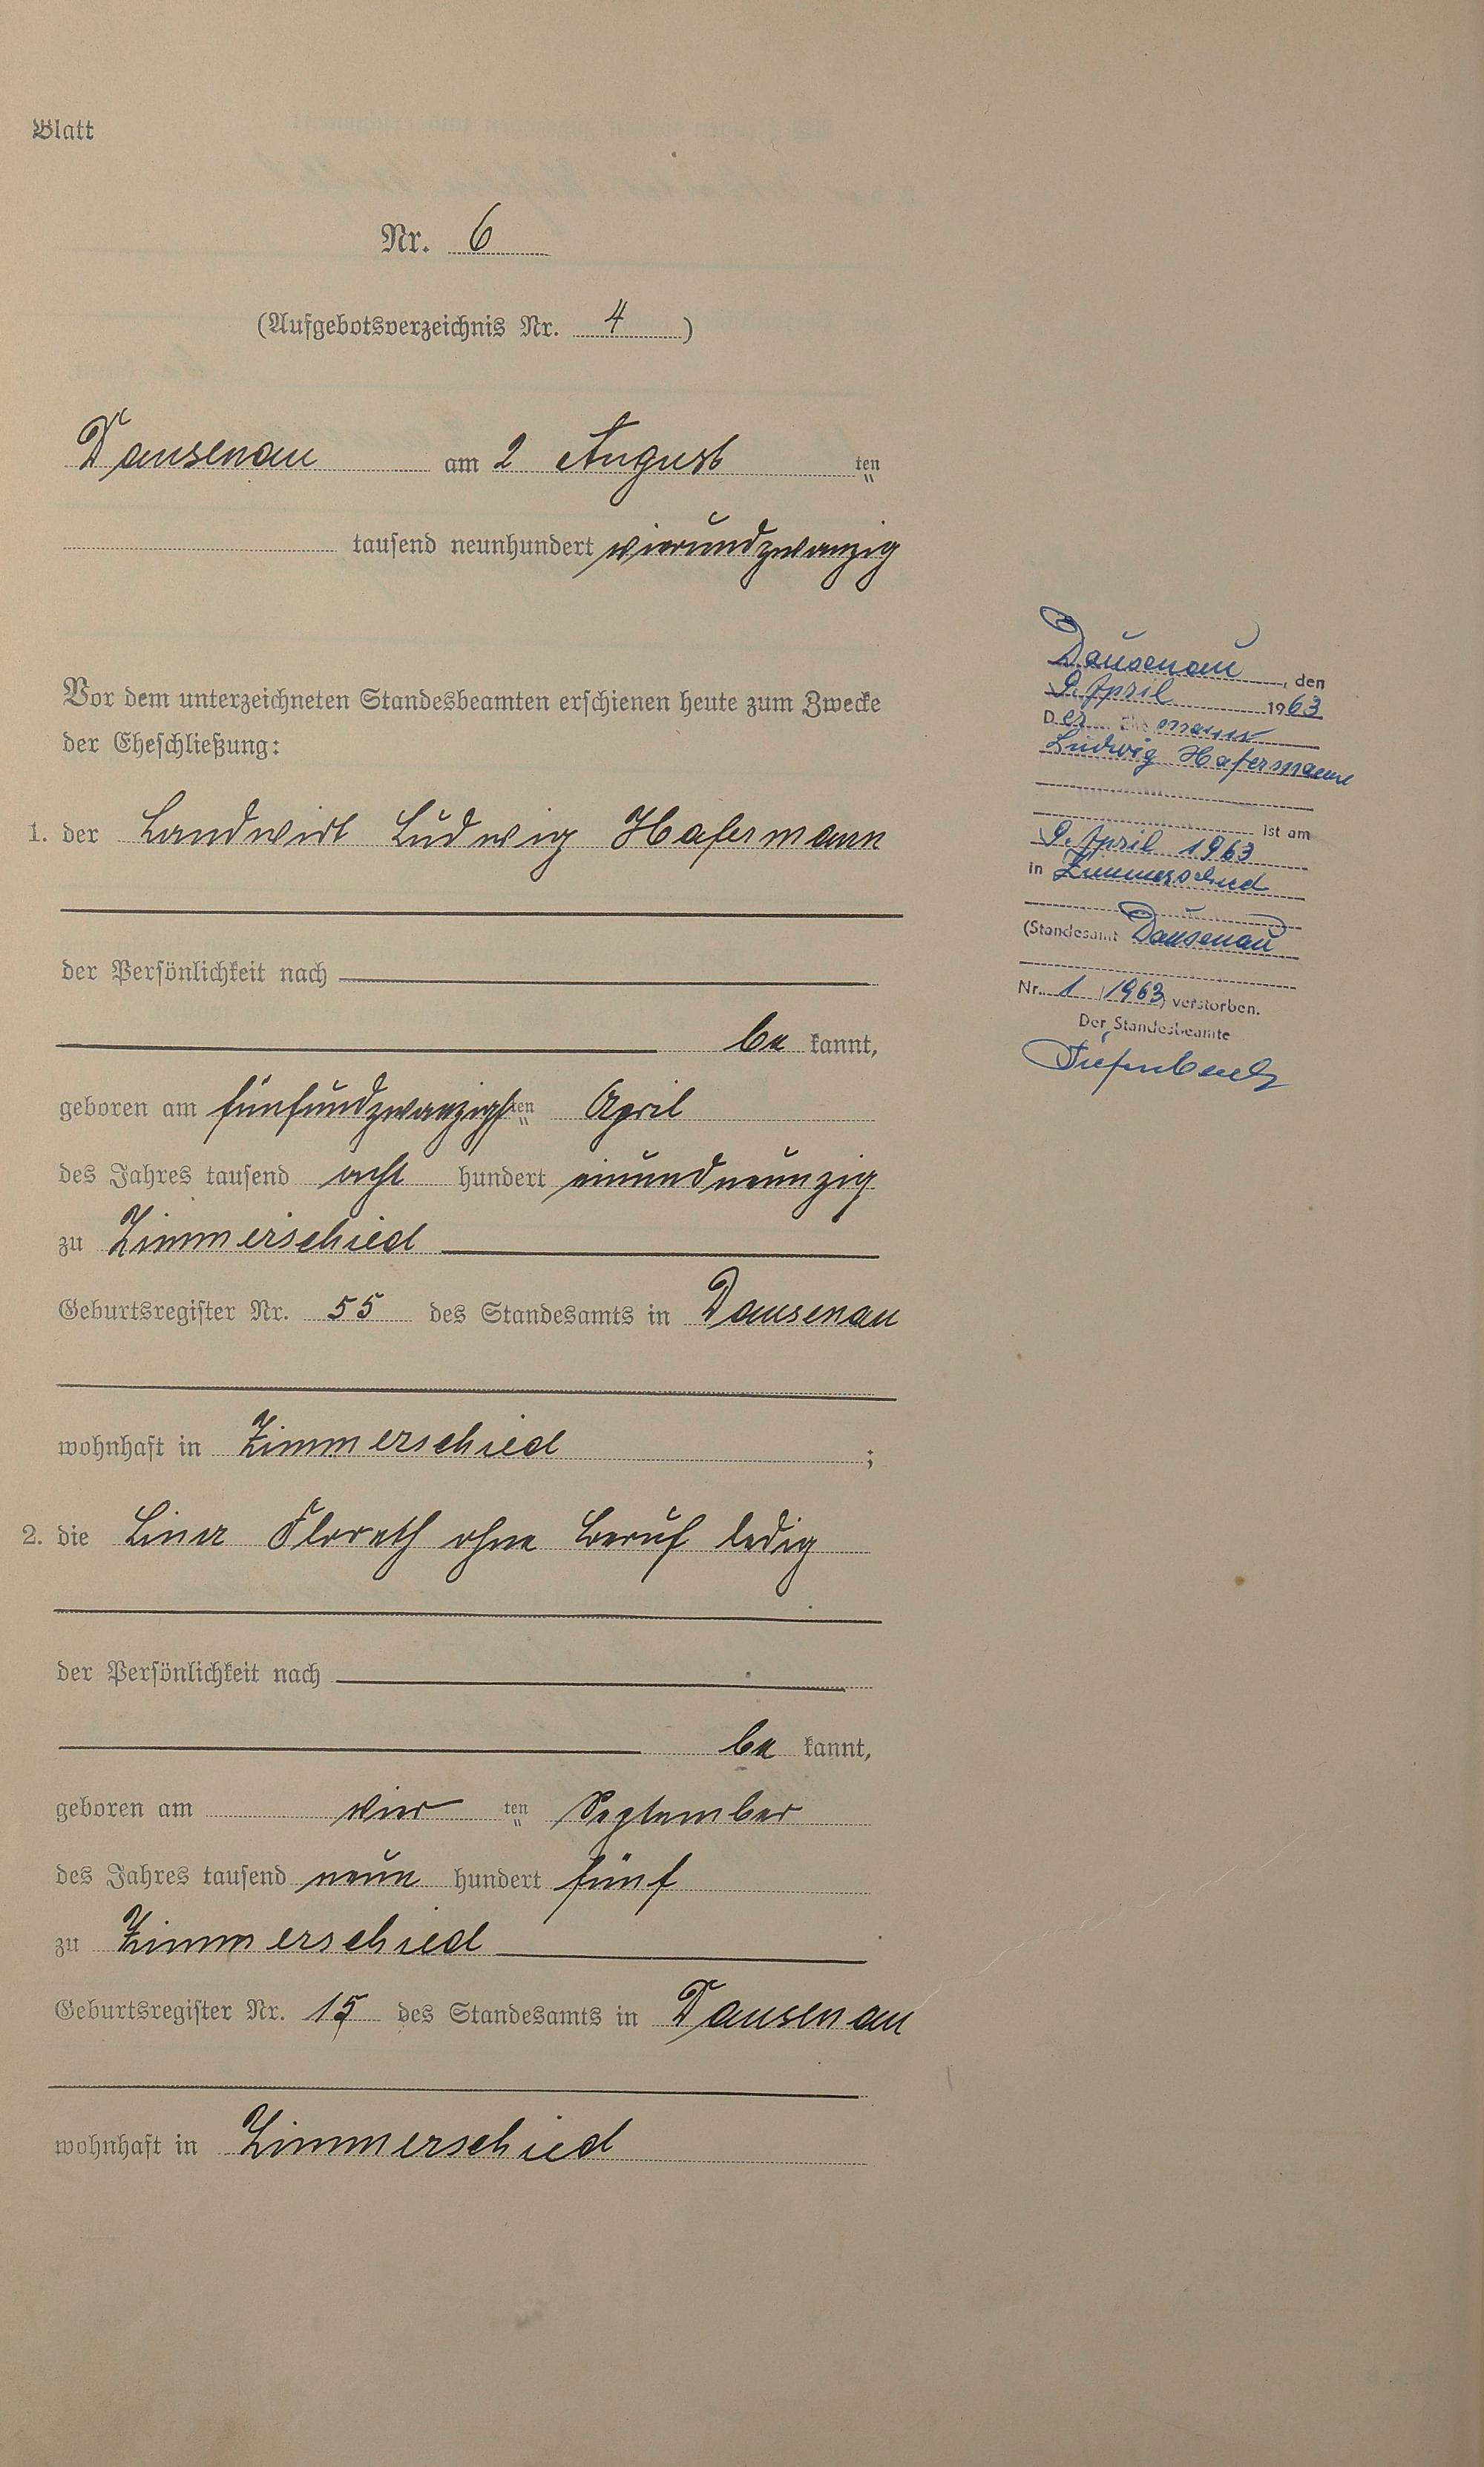 Blatt
Nr. 6
(Aufgebotsverzeichnis Nr. 4)
Dausenau am 2 August ten
tausend neunhundert vierundzwanzig
Vor dem unterzeichneten Standesbeamten erschienen heute zum Zwecke
der Eheschließung:
1. der Landwirt Ludwig Hafermann
der Persönlichkeit nach
be kannt,
geboren am fünfundzwanzigsten April
des Jahres tausend acht hundert einundneunzig
zu Zimmerschied
Geburtsregister Nr. 55 des Standesamts in Dausenau
wohnhaft in Zimmerschied ;
2. die Lina Florath ohne Beruf ledig
der Persönlichkeit nach
be kannt,
geboren am vier ten September
des Jahres tausend neun hundert fünf
zu Zimmerschied
Geburtsregister Nr. 15 des Standesamts in Dausenau
wohnhaft in Zimmerschied
Dausenau, den
9. April 1963
Der Ehemann
Ludwig Hafermann
ist am
9. April 1963
in Zimmerschied
(Standesamt Dausenau
Nr. 1/1963) verstorben.
Der Standesbeamte